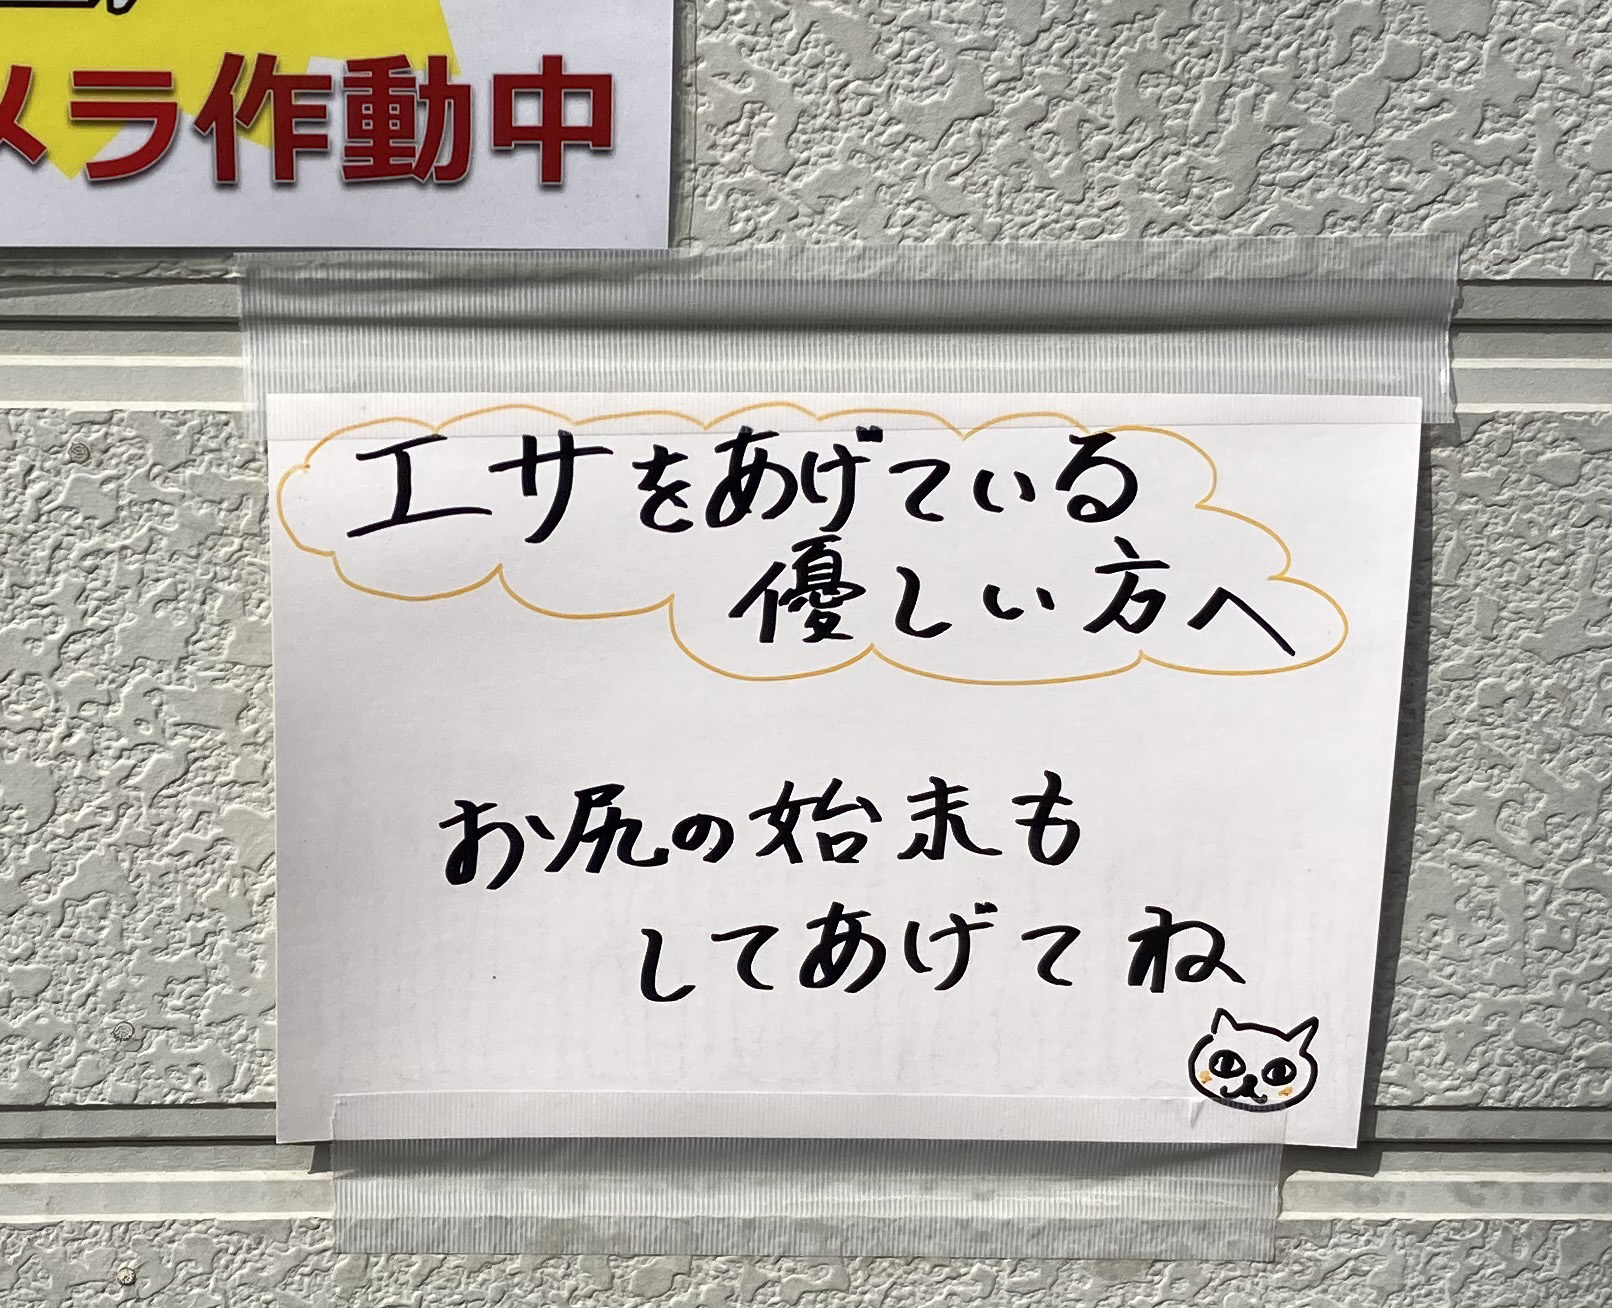 メラ作動中
エサをあげている
優しい方へ
お尻の始末も
してあげてね